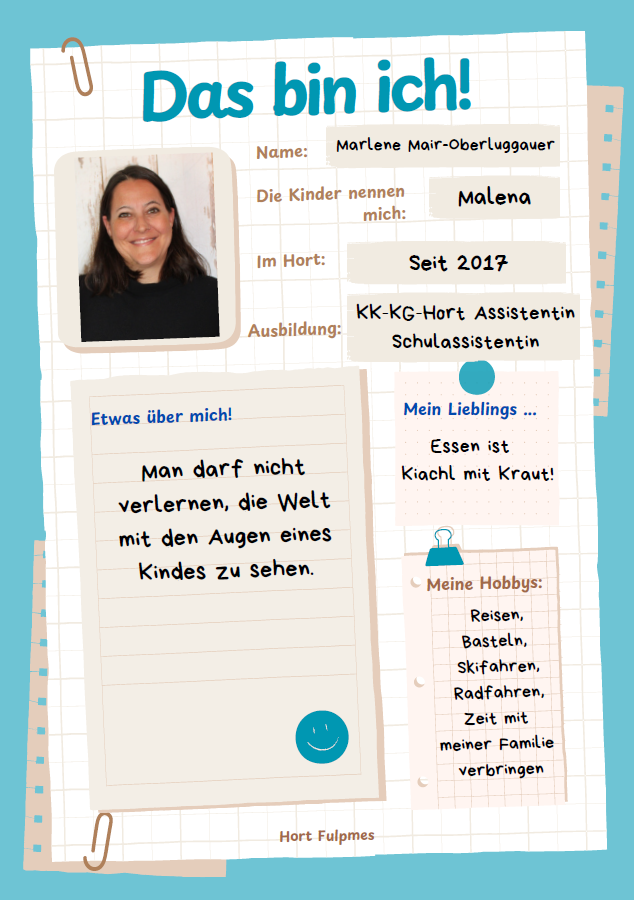 Das bin ich!
Name:
Marlene Mair-Oberluggauer
Die Kinder nennen
mich:
Malena
Im Hort:
Seit 2017
Ausbildung:
KK-KG-Hort Assistentin
Schulassistentin
Etwas über mich!
Man darf nicht
verlernen, die Welt
mit den Augen eines
Kindes zu sehen.
Mein Lieblings ...
Essen ist
Kiachl mit Kraut!
Meine Hobbys:
Reisen,
Basteln,
Skifahren,
Radfahren,
Zeit mit
meiner Familie
verbringen
Hort Fulpmes